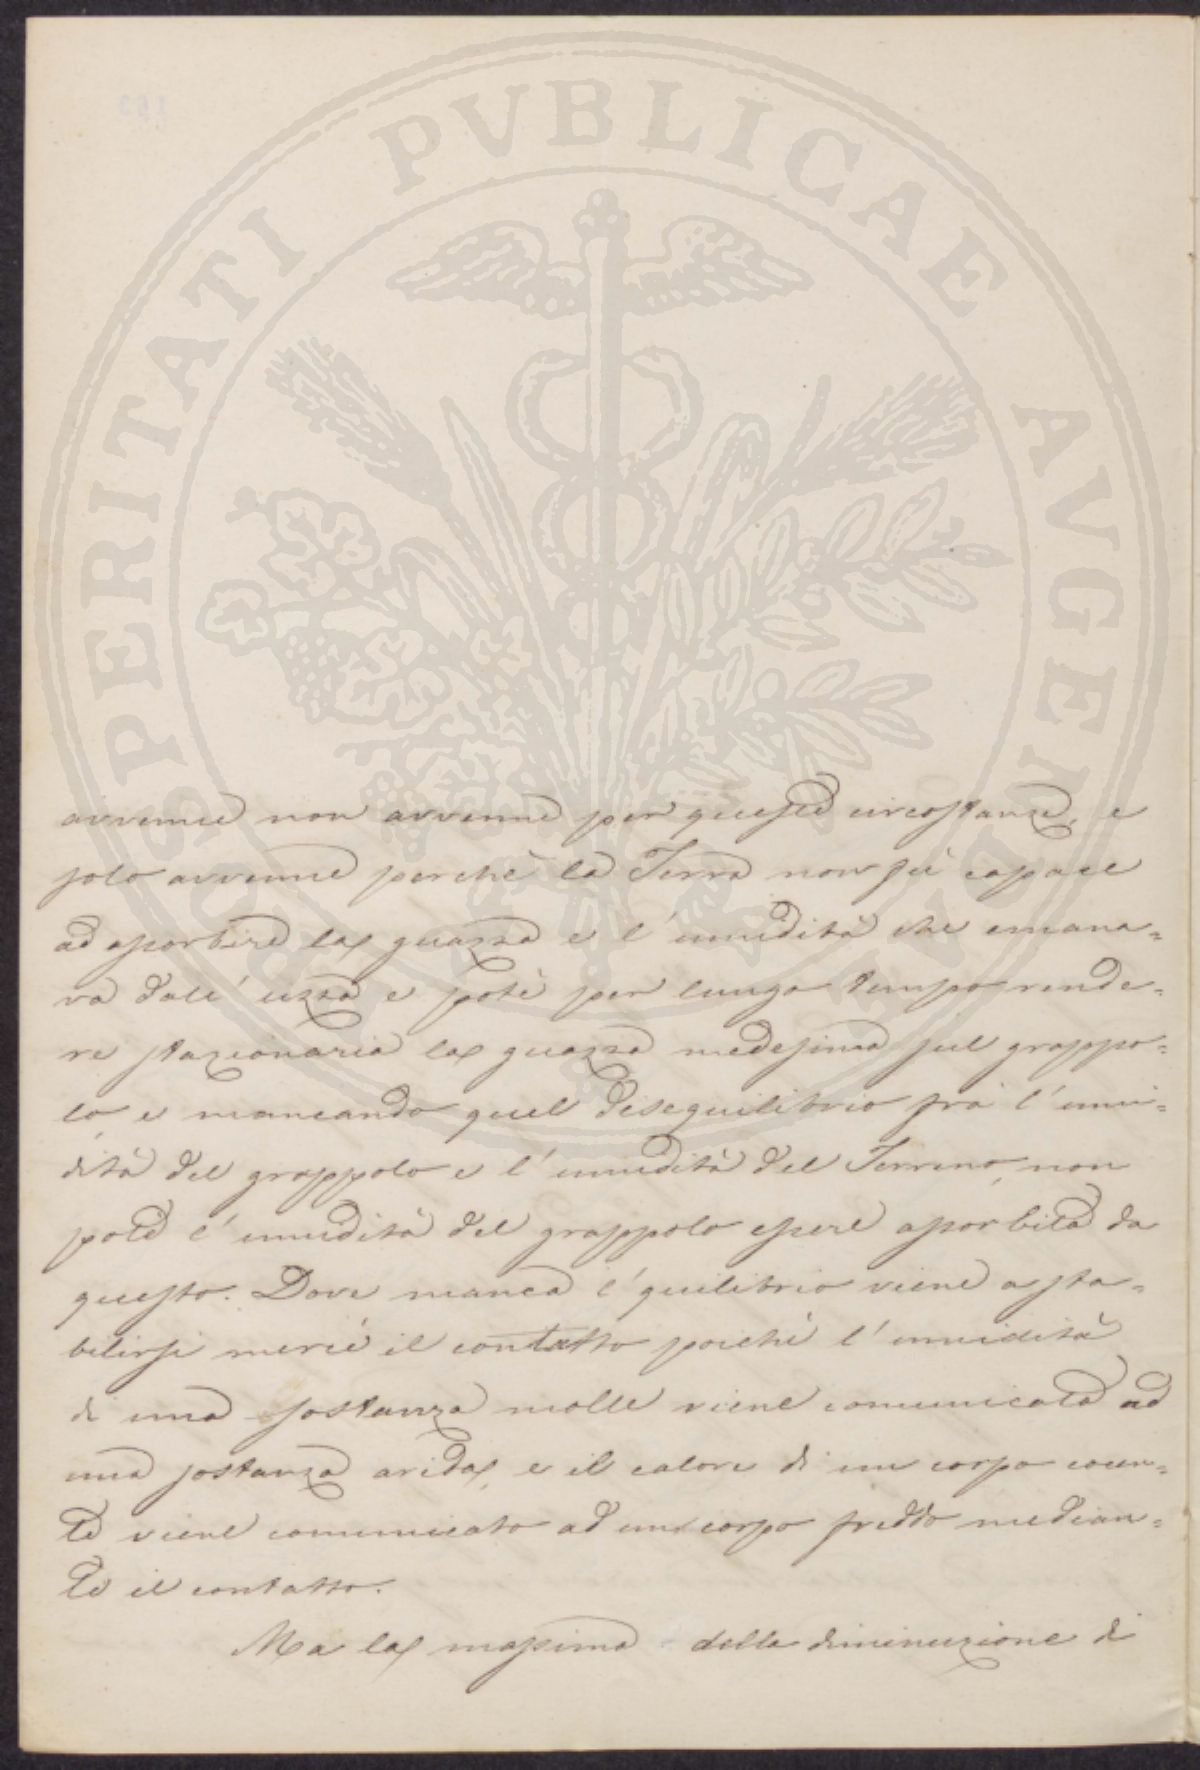 PROSPERITATI PVBLICAE AVGENDAE
avvenne non avvenne per questa circostanza, e
solo avvenne perchè la Terra non fù capace
ad assorbire la guazza e l'umidità che emana=
va dall'uzza e potè per lungo tempo rende=
re stazionaria la guazza medesima sul grappo=
lo e mancando quel disequilibrio fra l'umi=
dità del grappolo e l'umidità del Terreno non
potè l'umidità del grappolo essere assorbita da
questo. Dove manca l'equilibrio viene a sta=
bilirsi mercè il contatto poichè l'umidità
di una sostanza molle viene comunicata ad
una sostanza arida, e il calore di un corpo cocen=
te viene comunicato ad un corpo freddo median=
te il contatto.
Ma la massima della diminuzione di